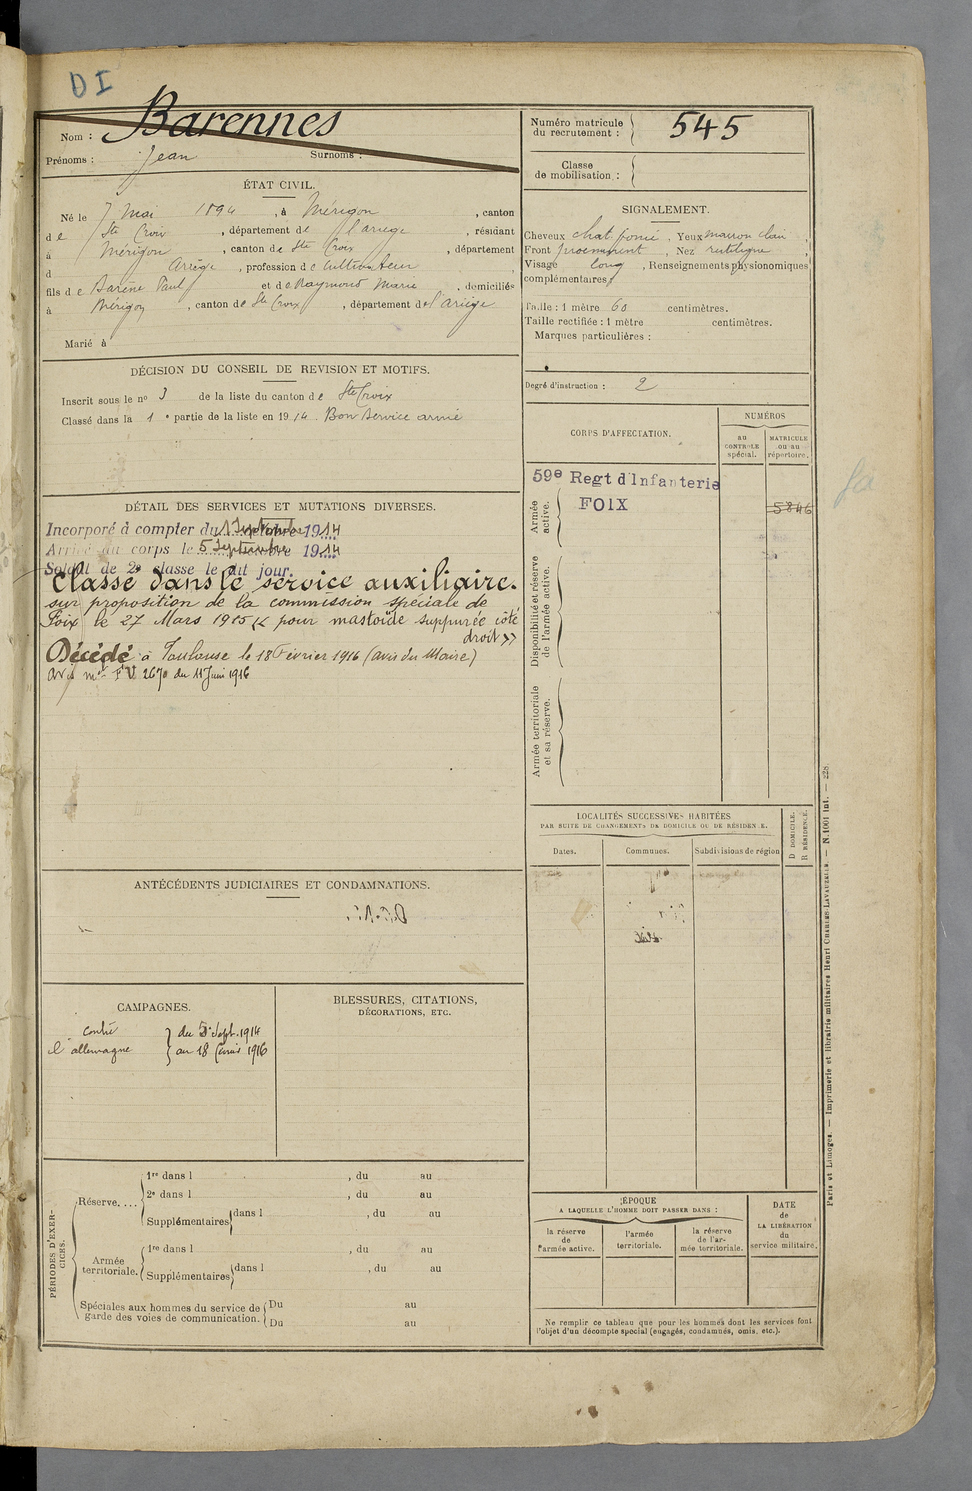 DI
Nom : Barennes
Prénoms : Jean Surnoms :
Numéro matricule du recrutement : 545
Classe de mobilisation :
ÉTAT CIVIL.
Né le 7 Mai 1894, à Mérigon, canton
de Ste Croix, département de l'ariège, résidant
à Mérigon, canton de Ste Croix, département
d Ariège, profession de cultivateur
fils de Barène Paul et de Raymond Marie, domiciliés
à Mérigon, canton de Ste Croix, département de l'ariège
Marié à
SIGNALEMENT.
Cheveux chat. foncé, Yeux marron clair,
Front proeminent, Nez rectiligne,
Visage long, Renseignements physionomiques
complémentaires
Taille : 1 mètre 60 centimètres.
Taille rectifiée : 1 mètre centimètres.
Marques particulières :
Degré d'instruction : 2
DÉCISION DU CONSEIL DE REVISION ET MOTIFS.
Inscrit sous le no 3 de la liste du canton de Ste Croix
Classé dans la 1e partie de la liste en 1914. Bon service armé
DÉTAIL DES SERVICES ET MUTATIONS DIVERSES.
Incorporé à compter du 1 Septembre 1914
Arrivé au corps le 5 Septembre 1914
Soldat de 2e classe le dit jour.
Classé dans le service auxiliaire.
sur proposition de la commission spéciale de
Foix le 27 Mars 1915 « pour mastoïde suppurée côté
droit »
Décédé à Toulouse le 18 Février 1916 (avis du Maire)
avis mel F V 2670 du 11 Juin 1916
CORPS D'AFFECTATION.
NUMÉROS
au CONTROLE spécial.
MATRICULE ou au répertoire.
Armée active.
59e Regt d'Infanterie
FOIX
5846
Disponibilité et réserve de l'armée active.
Armée territoriale et sa réserve.
LOCALITÉS SUCCESSIVES HABITÉES
PAR SUITE DE CHANGEMENTS DE DOMICILE OU DE RÉSIDENCE.
Dates.
Communes.
Subdivisions de région
D DOMICILE.
R RÉSIDENCE.
ANTÉCÉDENTS JUDICIAIRES ET CONDAMNATIONS.
CAMPAGNES.
contre l'allemagne } du 5 Sept. 1914
au 18 février 1916
BLESSURES, CITATIONS,
DÉCORATIONS, ETC.
PÉRIODES D'EXERCICES.
Réserve....
1re dans l , du au
2e dans l , du au
Supplémentaires dans l , du au
Armée territoriale.
1re dans l , du au
Supplémentaires dans l , du au
Spéciales aux hommes du service de garde des voies de communication.
Du au
Du au
ÉPOQUE
A LAQUELLE L'HOMME DOIT PASSER DANS :
la réserve de l'armée active.
l'armée territoriale.
la réserve de l'armée territoriale.
DATE
de
LA LIBÉRATION
du
service militaire.
Ne remplir ce tableau que pour les hommes dont les services font
l'objet d'un décompte spécial (engagés, condamnés, omis, etc.).
Paris et Limoges. — Imprimerie et librairie militaires Henri CHARLES-LAVAUZELLE. — N. 1001 Int. — 228.